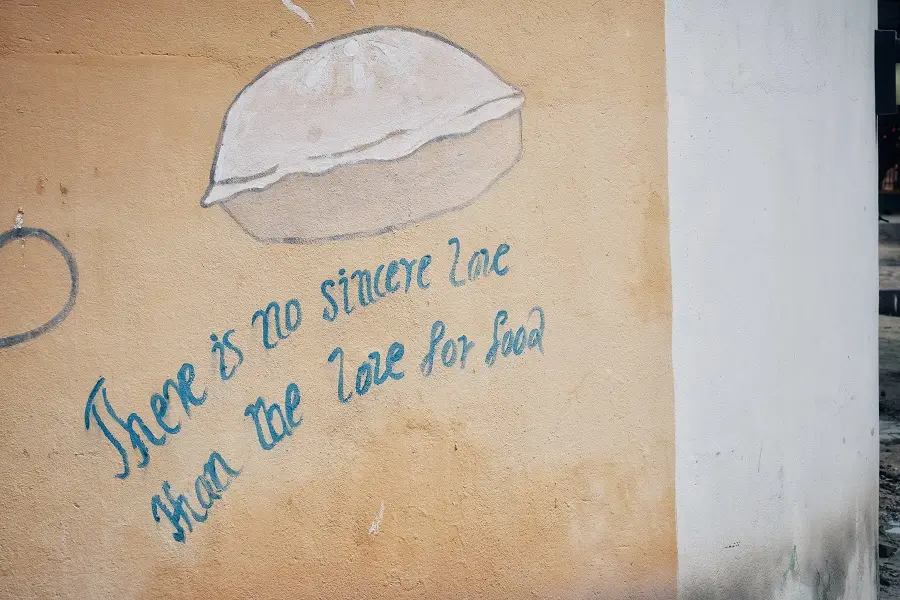 There is no sincere love
than the love for food